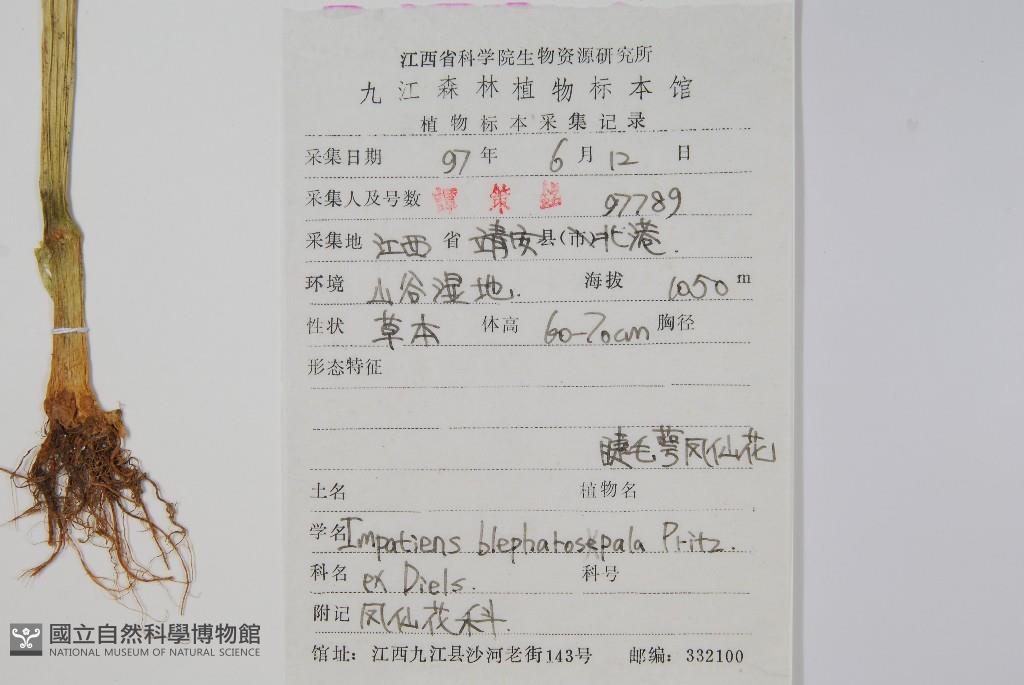 江西省科学院生物资源研究所
九江森林植物标本馆
植物标本采集记录
采集日期 97 年 6 月 12 日
采集人及号数 譚策銘 97789
采集地 江西 省 靖安 县(市) 北港.
环境 山谷湿地. 海拔 1050 m
性状 草本 体高 60-70cm 胸径
形态特征
睫毛萼凤仙花
土名 植物名
学名 Impatiens blepharosepala Pritz.
科名 ex Diels. 科号
附记 凤仙花科.
馆址: 江西九江县沙河老街143号 邮编: 332100
國立自然科學博物館
NATIONAL MUSEUM OF NATURAL SCIENCE